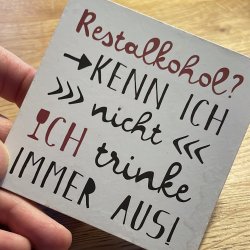 Restalkohol?
→KENN ICH
››› nicht ‹‹‹
ICH trinke
IMMER AUS!